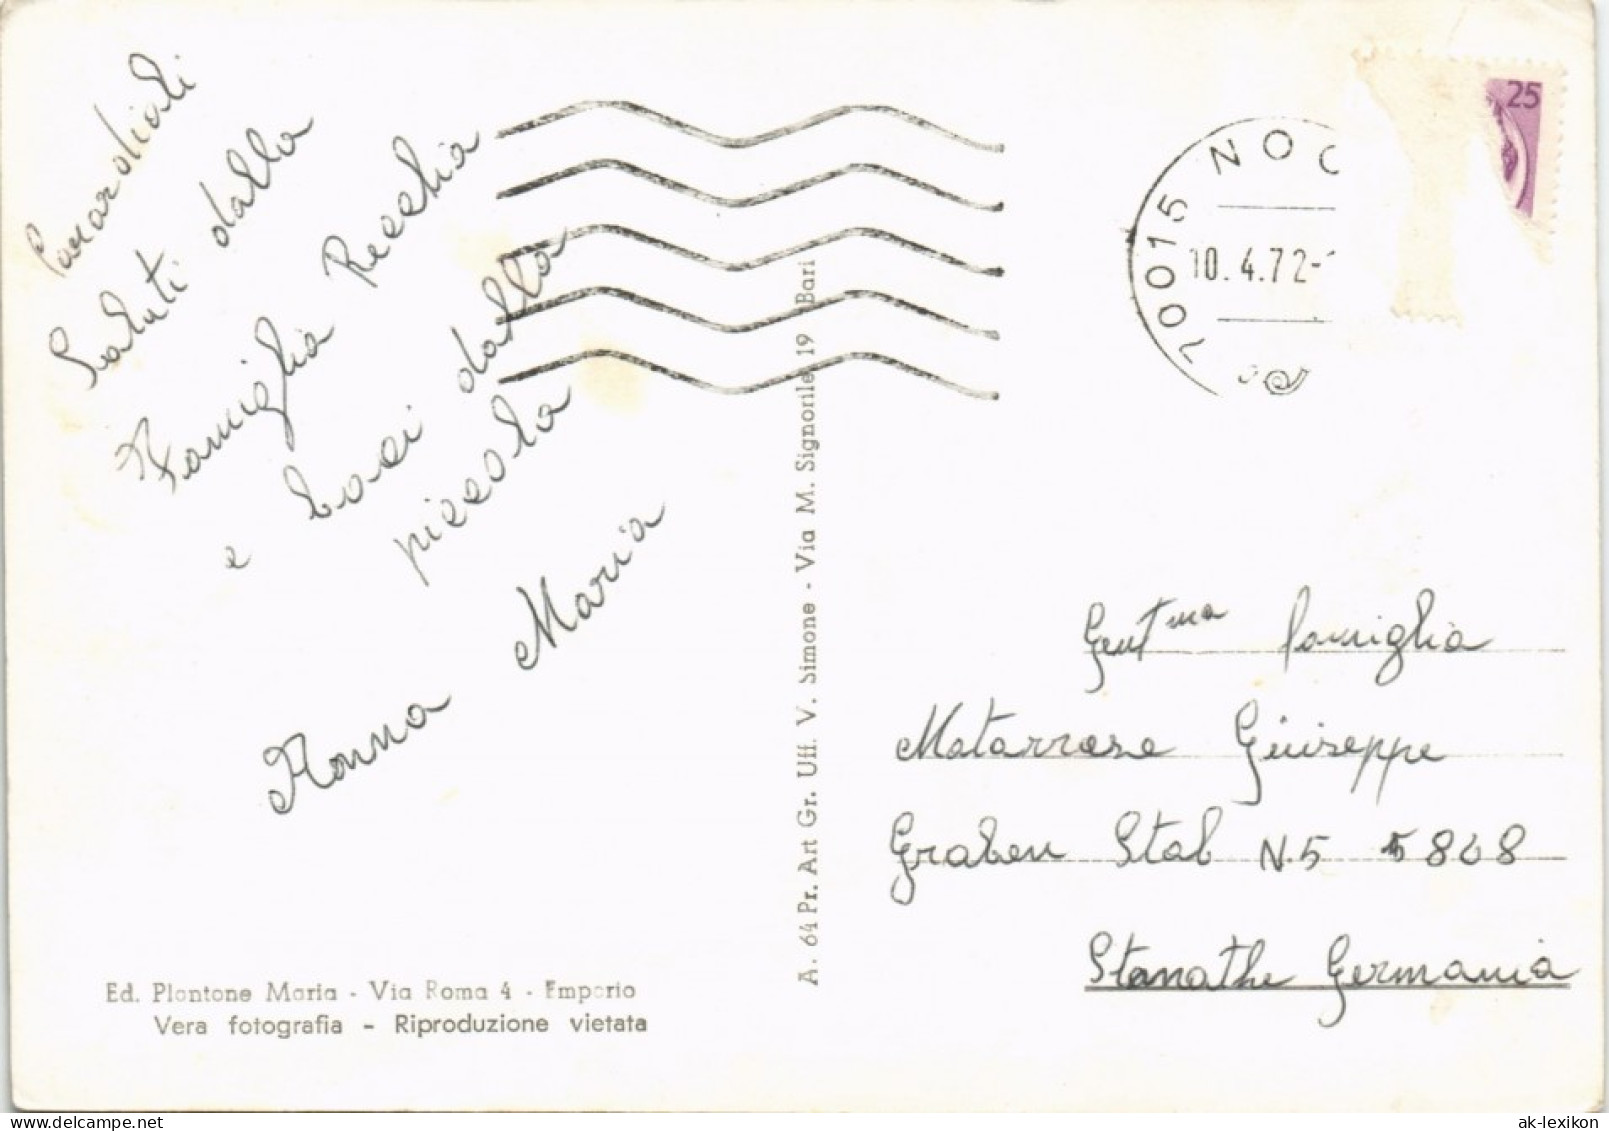 Saluti dalla
Famiglia Recchia
e baci dalla
piccola
Nonna Maria
Ed. Plantone Maria - Via Roma 4 - Emporio
Vera fotografia - Riproduzione vietata
A. 64 Pr. Art Gr. Uff. V. Simone - Via M. Signorile 19 Bari
70015 NOC
10.4.72-
25
Gentma famiglia
Matarrese Giuseppe
Graben Stal N.5 5868
Stanathe Germania
ak-lexikon.com